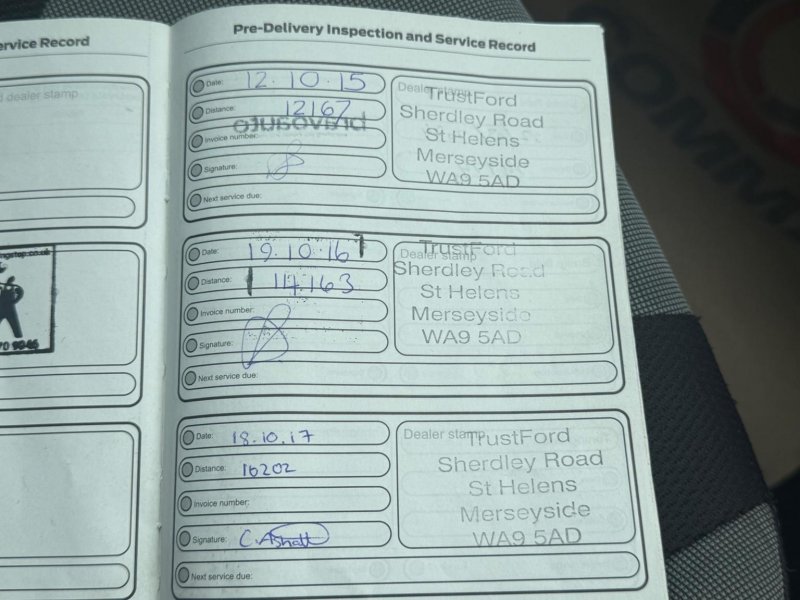 ervice Record
dealer stamp
ngstop.co.uk
Pre-Delivery Inspection and Service Record
Date: 12.10.15
Distance: 12167
bravoauto
Invoice number:
Signature:
Next service due:
Dealer stamp
TrustFord
Sherdley Road
St Helens
Merseyside
WA9 5AD
Date: 19.10.16
Distance: 14163
Invoice number:
Signature:
Next service due:
Dealer stamp
TrustFord
Sherdley Road
St Helens
Merseyside
WA9 5AD
Date: 18.10.17
Distance: 16202
Invoice number:
Signature: C. Ashall
Next service due:
Dealer stamp
TrustFord
Sherdley Road
St Helens
Merseyside
WA9 5AD